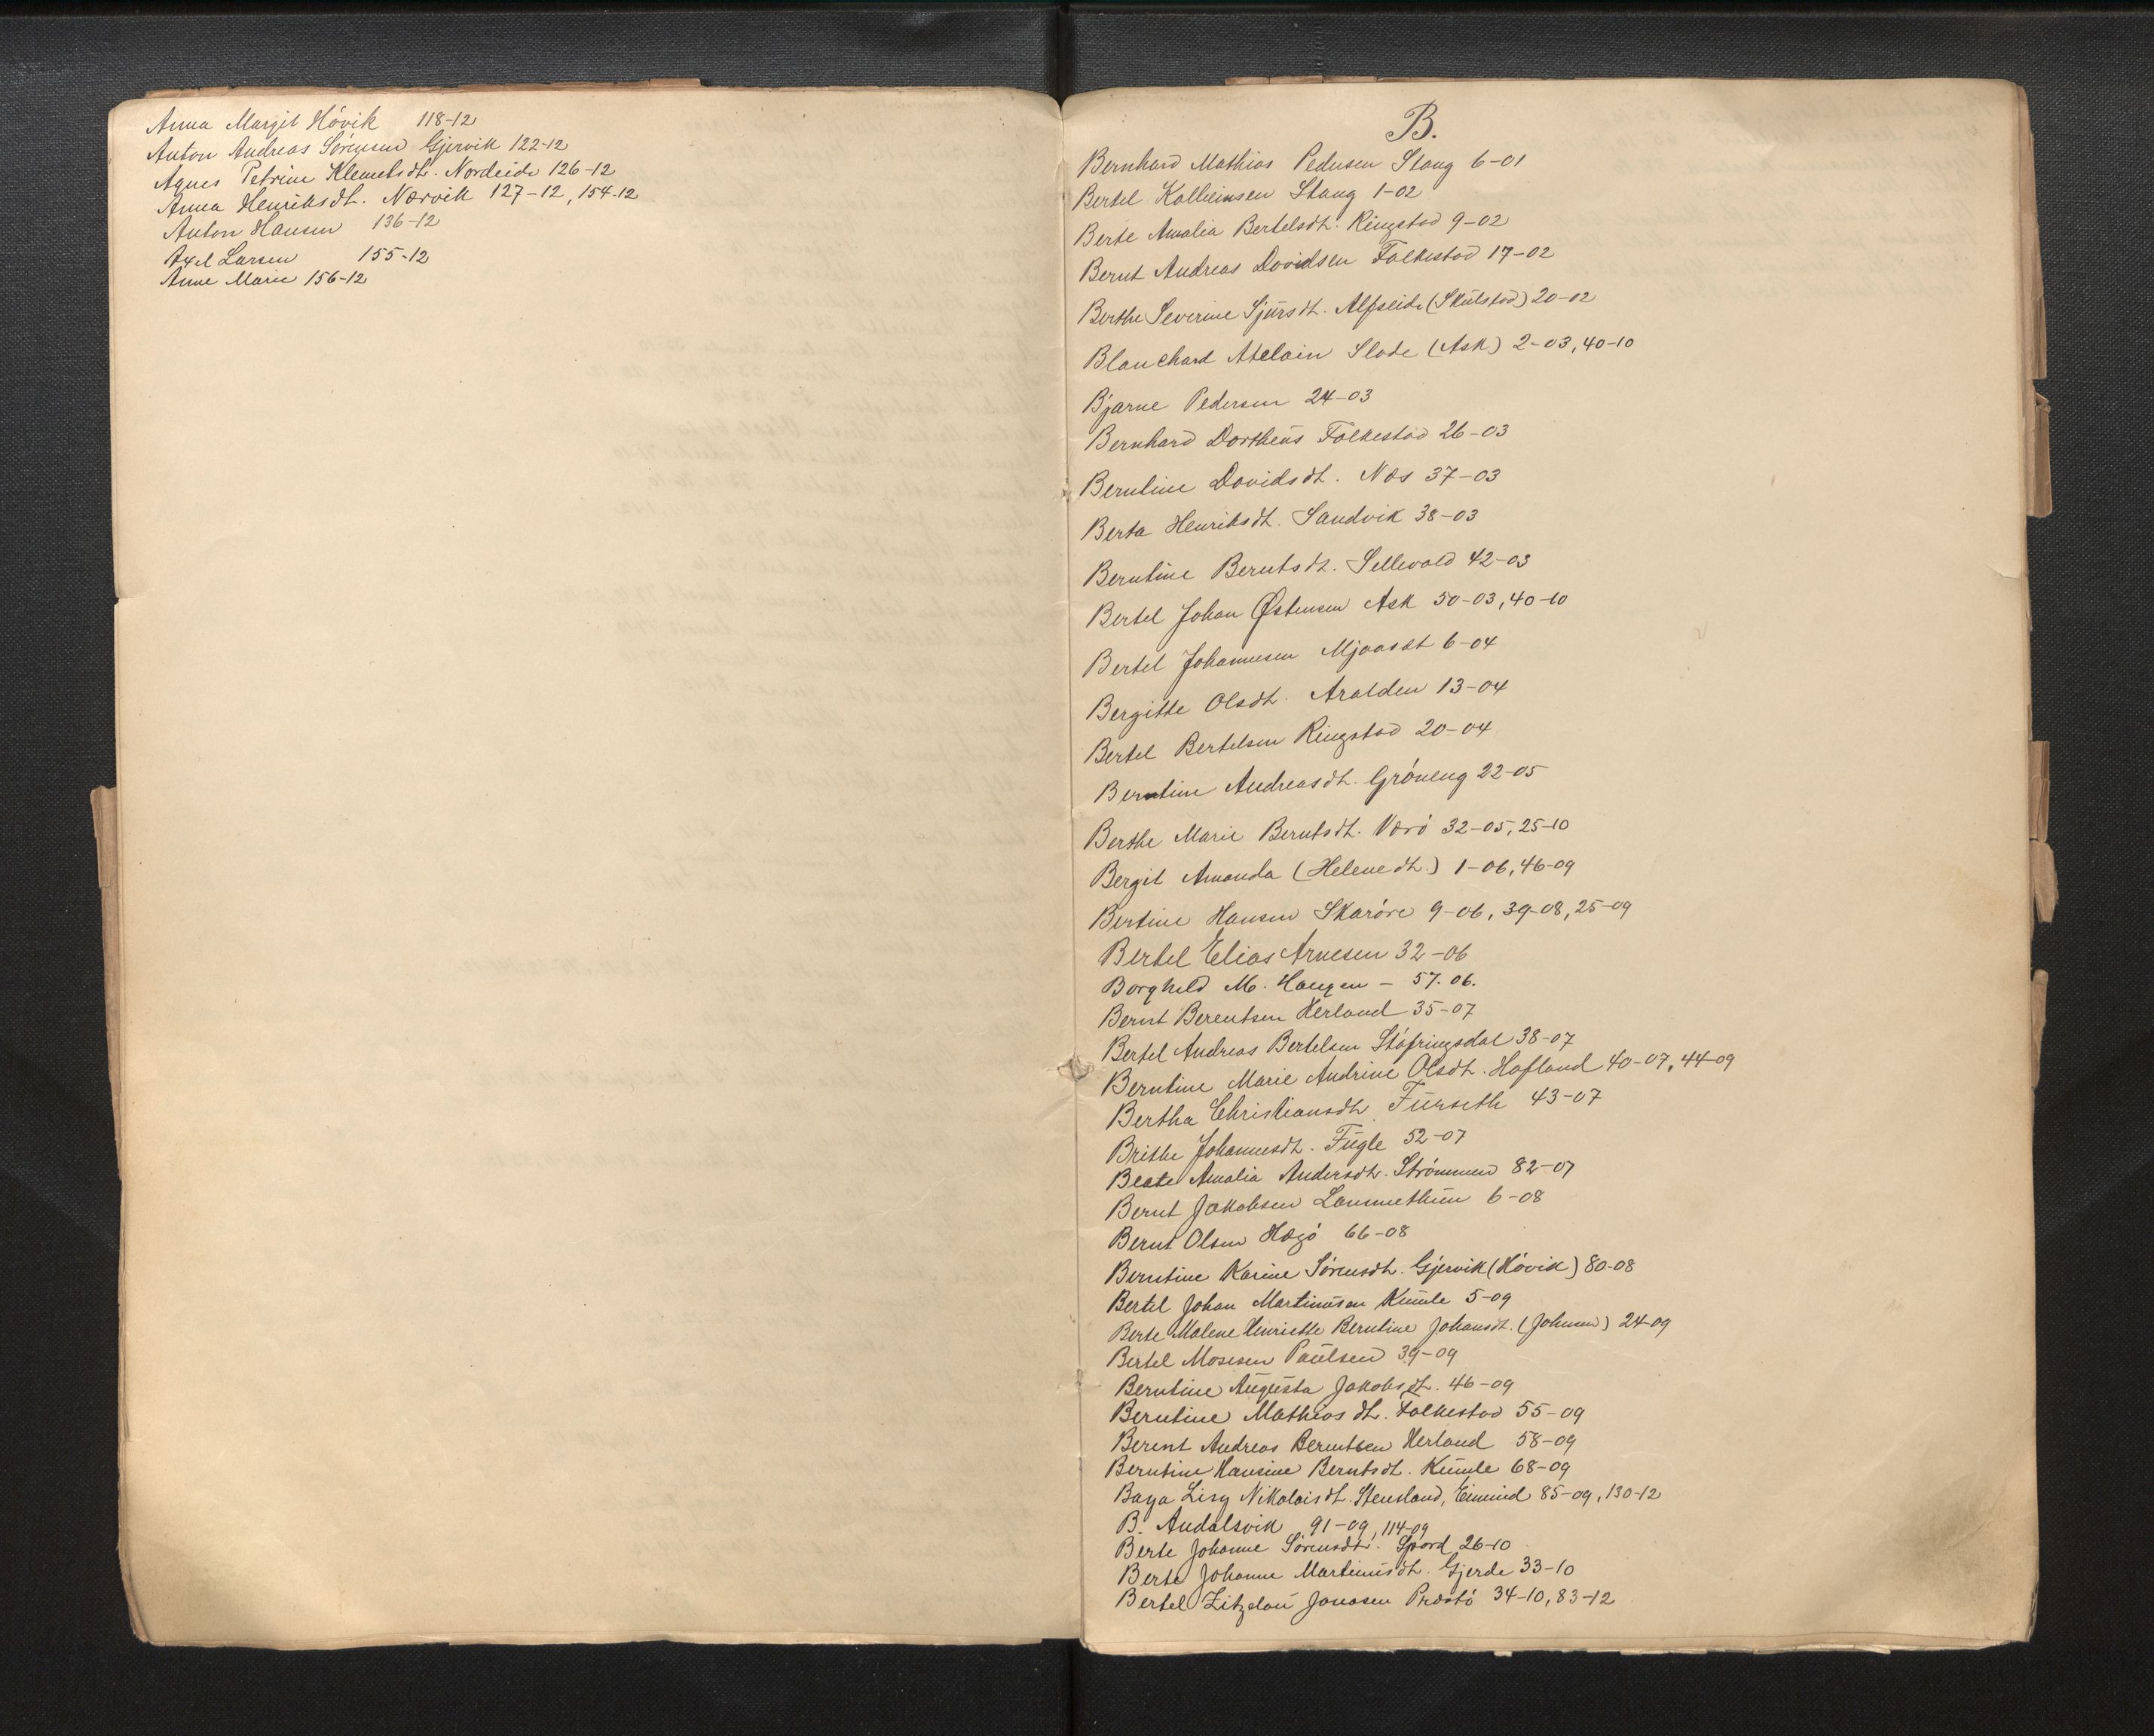 Anna Margit Hóvik 118-12
Anton Andreas Sórensen Gjervik 122-12
Agnes Petrine Klemetsdt. Nordeide 126-12
Anna Henriksdt. Nærvik 127-12, 154-12
Anton Hansen 136-12
Axel Larsen 155-12
Anne Marie 156-12
B.
Bernhard Mathias Pedersen Stang 6-01
Bertel Kolbeinsen Stang 1-02
Berte Amalia Bertelsdt. Ringstad 9-02
Bernt Andreas Davidsen Folkestad 17-02
Berthe Severine Sjursdt. (Skulstad) 20-02
Blanchard Slode (Ask) 2-03, 40-10
Bjarne Pedersen 24-03
Bernhard Dortheus Folkestad 26-03
Berntine Davidsdt. Næs 37-03
Berta Henriksdt. Sandvik 38-03
Berntine Berntsdt. Sellevold 42-03
Bertel Johan Østensen Ask 50-03, 40-10
Bertel Johannesen 6-04
Bergitte Olsdt. Aralden 13-04
Bertel Bertelsen Ringstad 20-04
Berntine Andreasdt. Gróneng 22-05
Berthe Marie Berntsdt. Veró 32-05, 25-10
Bergit Amanda (Helenedt.) 1-06, 46-09
Bertine Hansen Skaróre 9-06, 39-08, 25-09
Bertel Elias Arnesen 32-06
Borghild M. Haugen - 57.06.
Bernt Berentsen Herland 35-07
Bertel Andreas Bertelsen Stófringsdal 38-07
Berntine Marie Andrine Olsdt. Hafland 40-07, 44-09
Bertha Christiansdt. Furseth 43-07
Brithe Johannesdt. Fugle 52-07
Beate Amalia Andersdt. Strómmen 82-07
Bernt Jakobsen Lammethun 6-08
Bernt Olsen 66-08
Berntine Karine Sórensdt. Gjervik (Hóvik) 80-08
Bertel Johan Martinusen Kumle 5-09
Berte Malene Henriette Berntine Johansdt. (Johnsen) 24-09
Bertel Mosesen Paulsen 39-09
Berntine Augusta Jakobsdt. 46-09
Berntine Mathiasdt. Folkestad 55-09
Berent Andreas Berentsen Herland 58-09
Berntine Hansine Berntsdt. Kumle 68-09
Baya Lisy Nikolaisdt. Stensland, 85-09, 130-12
B. Andalsvik 91-09, 114-09
Berte Johanne Sórensdt. Spord 26-10
Berte Johanne Martinusdt. Gjerde 33-10
Bertel Zitzelou Jonasen Præstó 34-10, 83-12